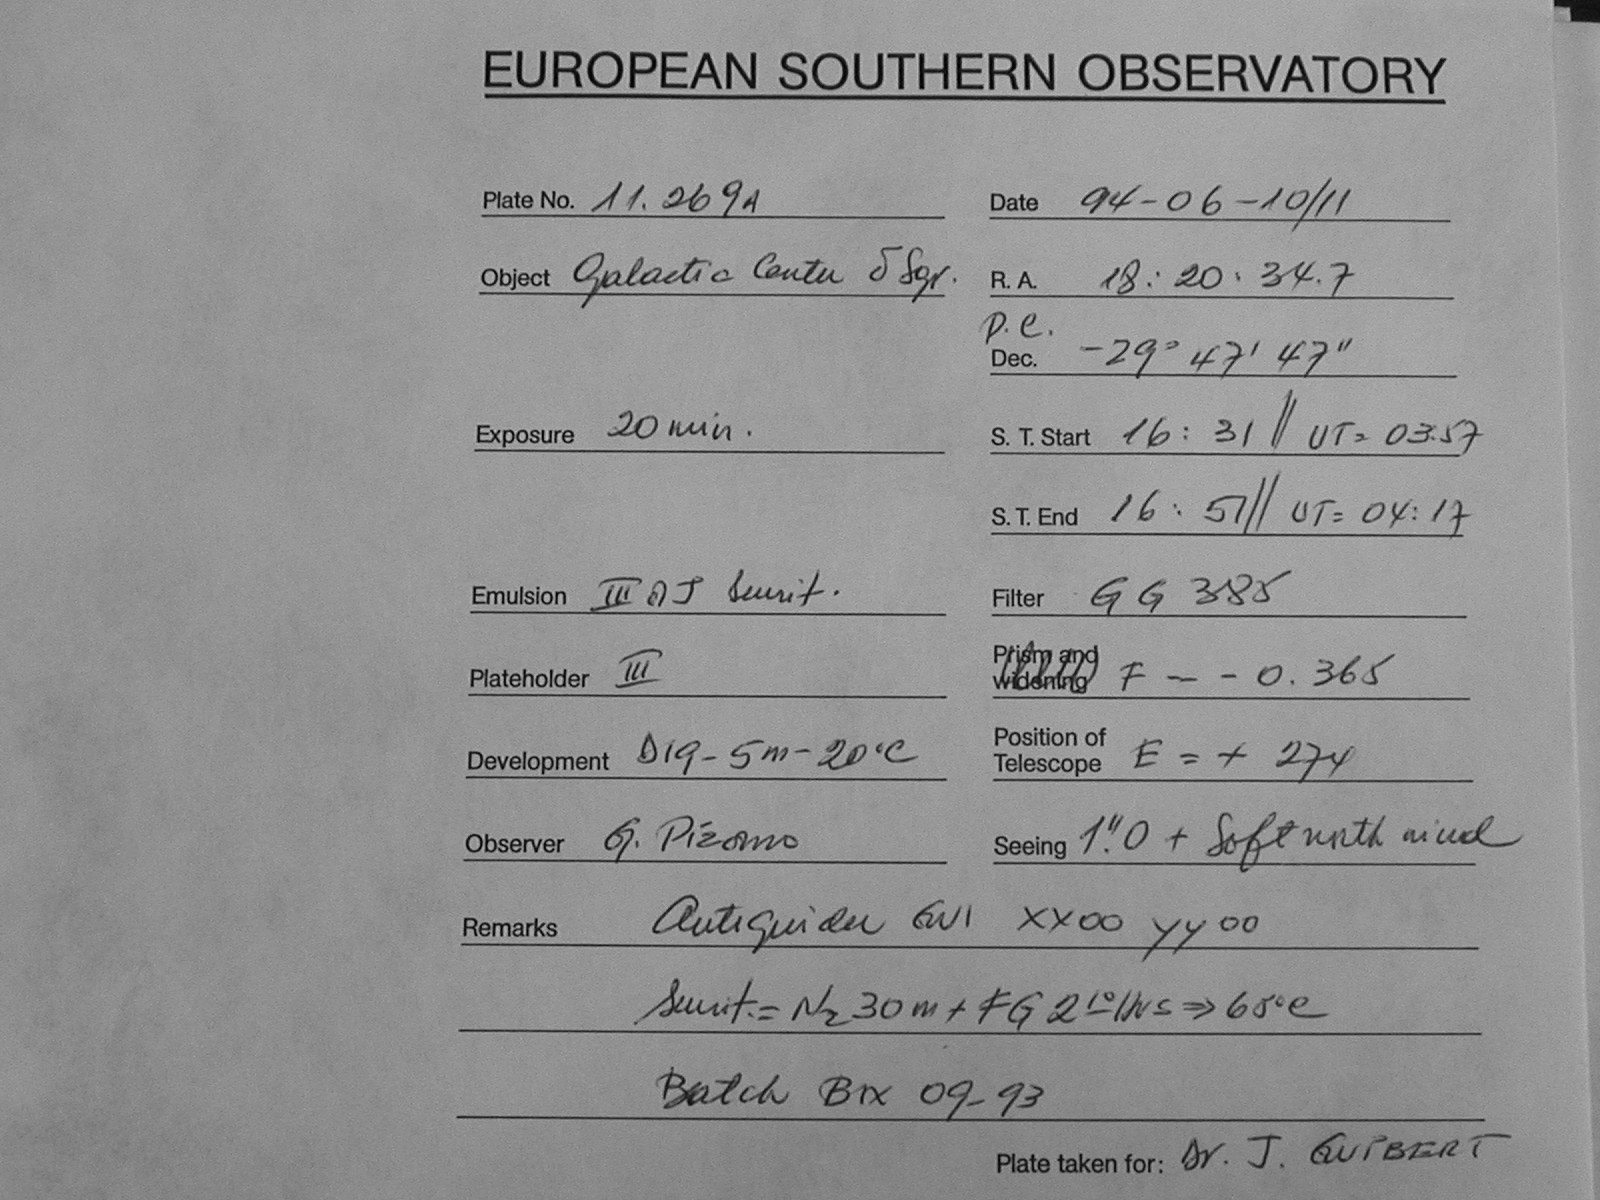 EUROPEAN SOUTHERN OBSERVATORY
Plate No. 11.269A Date 94-06-10/11
Object Galactic Center δ Sgr. R. A. 18: 20: 34.7
P.C.
Dec. -29° 47' 47"
Exposure 20 min. S. T. Start 16: 31 // UT= 03.57
S. T. End 16: 51 // UT= 04:17
Emulsion III a J Sensit. Filter GG 385
Plateholder III Prism and widening F -- 0.365
Development D19-5m-20°C Position of Telescope E = + 274
Observer G. Pizarro Seeing 1".0 + Soft north wind
Remarks Autoguider XX00 YY00
Sensit.= N2 30m + FG 2 hrs ⇒ 65°C
Batch 09-93
Plate taken for: Dr. J. GUIBERT